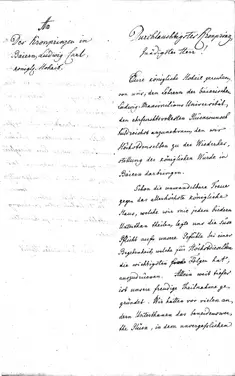 An
Des Kronprinzen in
Baiern, Ludwig Carl,
königl. Hoheit.
Durchlauchtigster Kronprinz
Gnädigster Herr!
Eure königliche Hoheit geruhen,
von uns, den Lehrern der baierischen
Ludwig Maximilians Universität,
den ehrfurchtvollesten Glückwunsch
huldreichst anzunehmen, den wir
Höchstdenselben zu der Wiederher-
stellung der königlichen Würde in
Baiern darbringen.
Schon die unwandelbare Treue
gegen das allerhöchste königliche
Haus, welche wir mit jedem biedern
Unterthan theilen, legte uns die süsse
Pflicht auf, unsre Gefühle bei einer
Begebenheit, welche für Höchstdieselben
die wichtigsten Folgen hat,
auszudrücken. Allein weit tiefer
ist unsre freudige Theilnahme ge-
gründet. Wir hatten vor vielen an-
dern Unterthanen das beneidenswer-
the Glück, in dem unvergesslichen